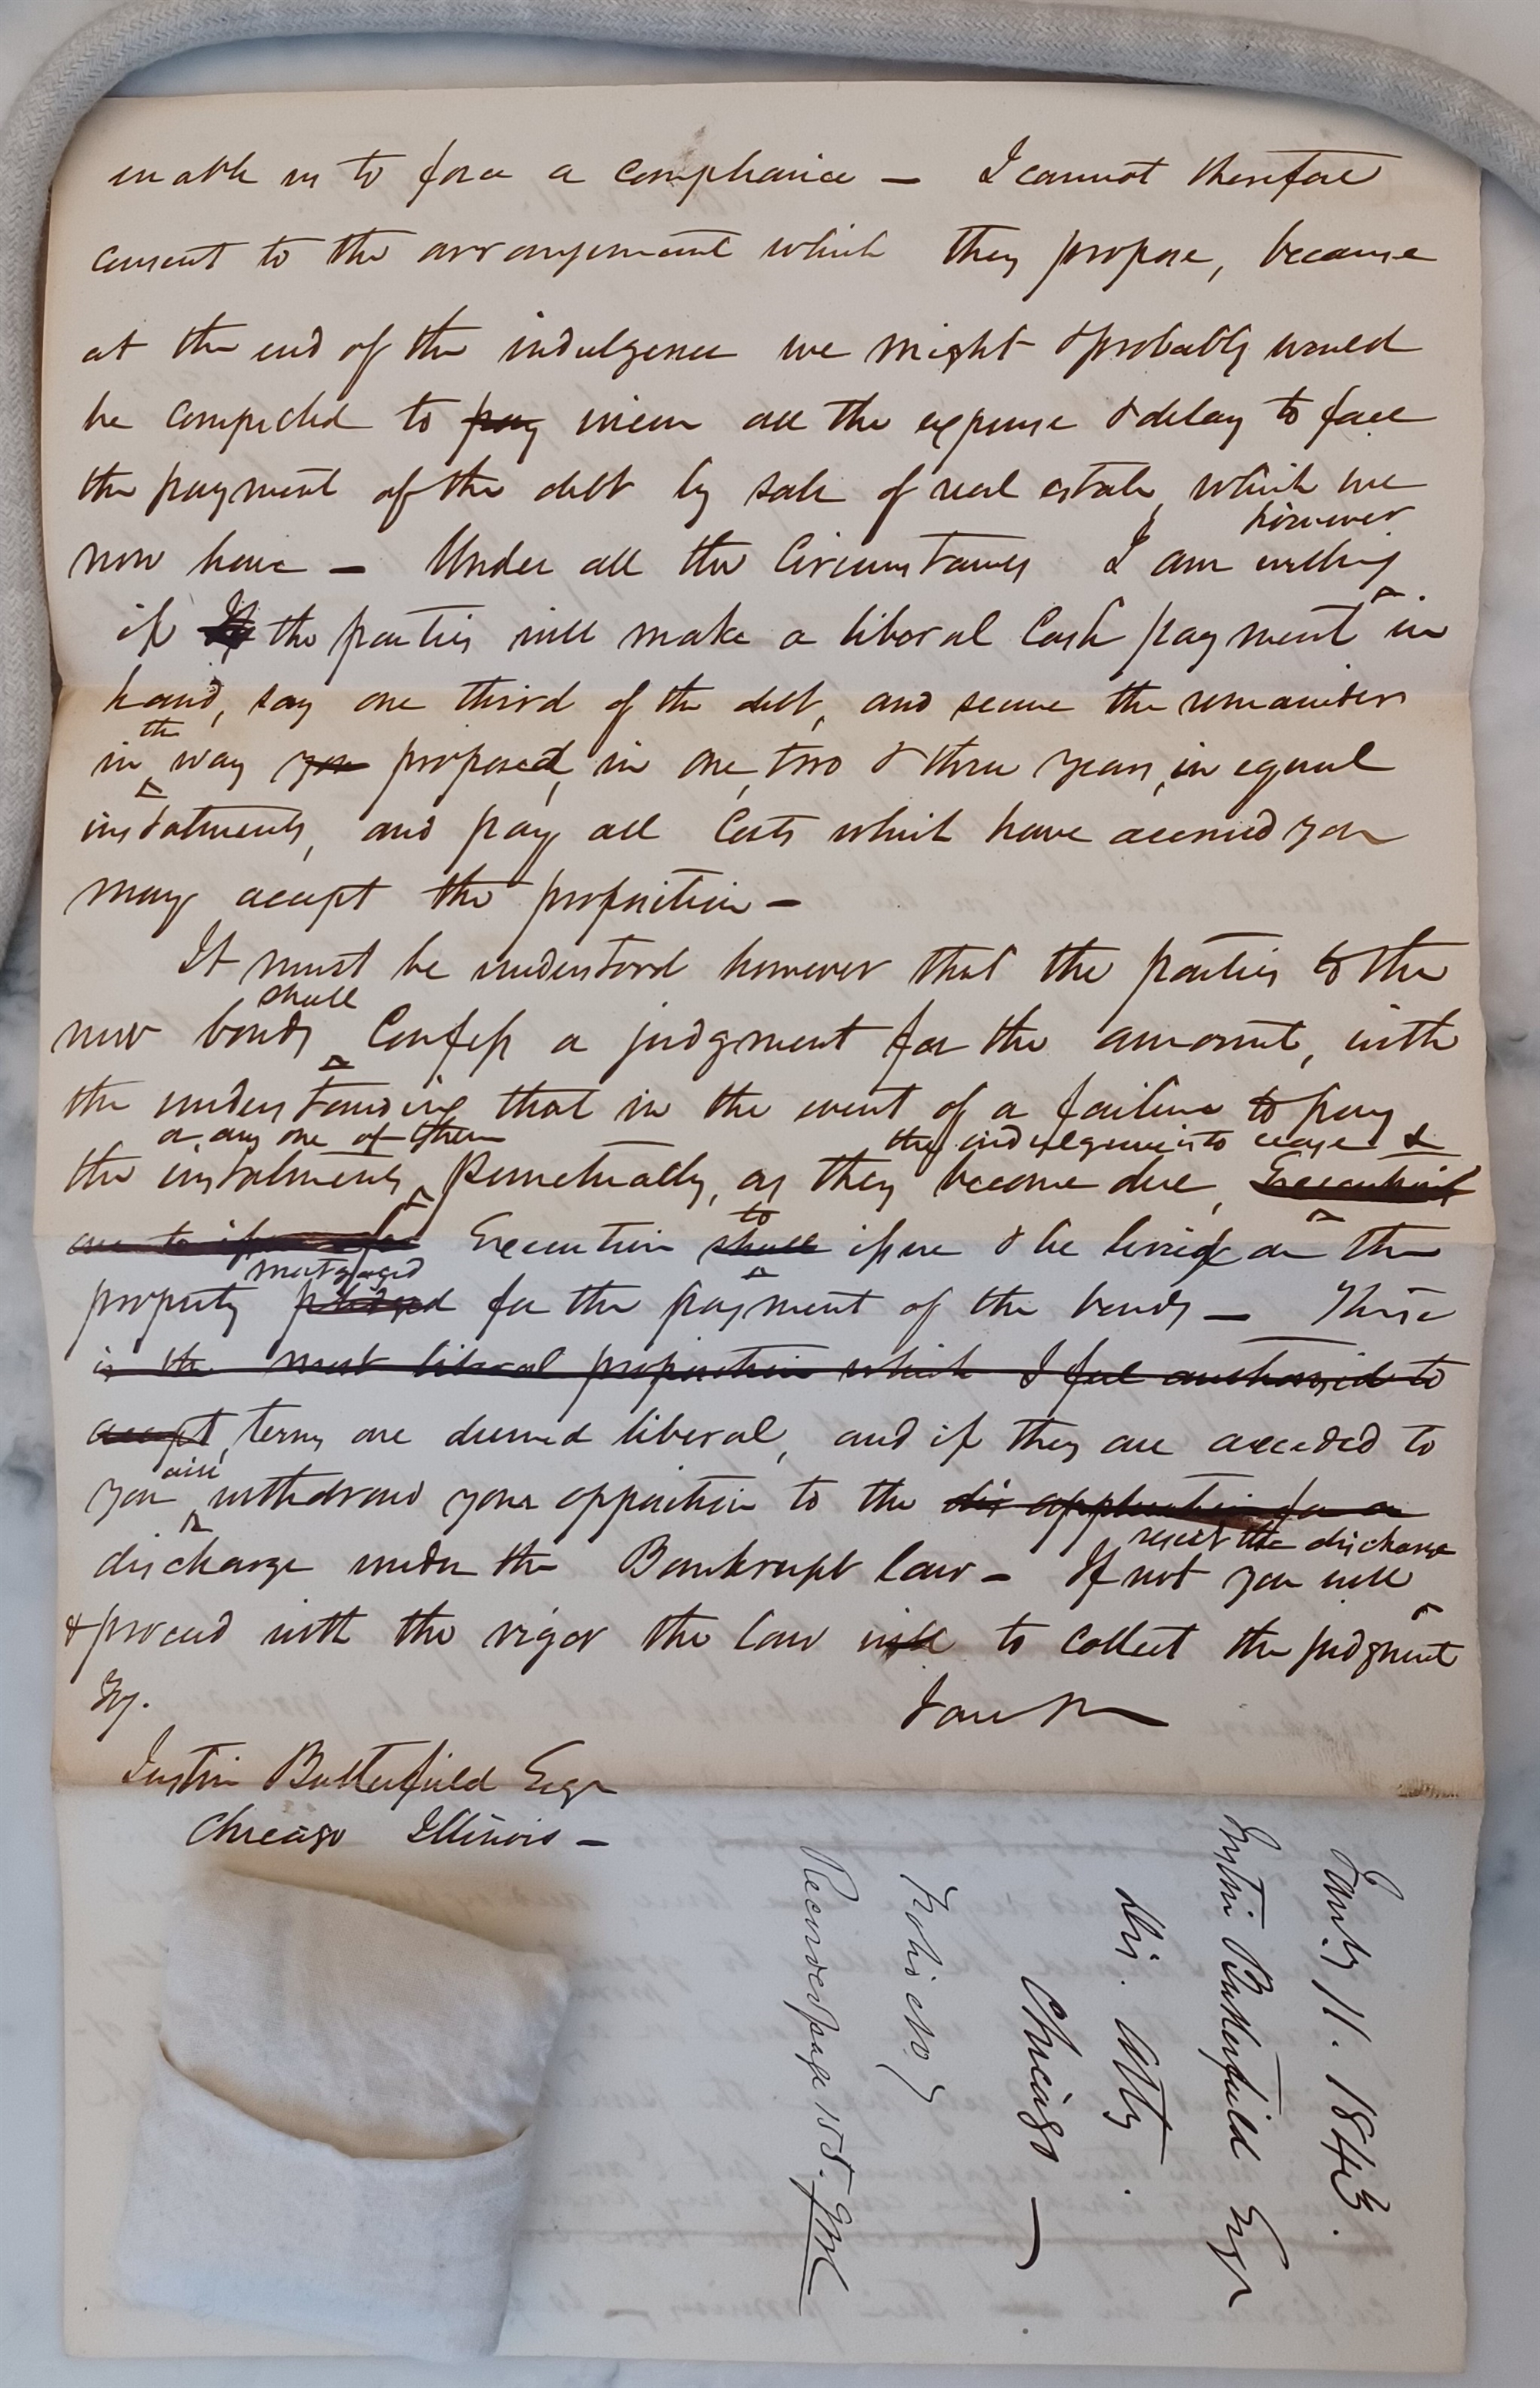 enable us to force a compliance — I cannot therefore
consent to the arrangement which they propose, because
at the end of the indulgence we might & probably would
be compelled to pay incur all the expense & delay to force
the payment of the debt by sale of real estate, which we
now have — Under all the Circumstances I am willing
however
if the parties will make a liberal Cash payment in
hand, say one third of the debt, and secure the remainder
the
in way you proposed, in one, two & three years, in equal
instalments, and pay all Costs which have accrued you
may accept the proposition —
It must be understood however that the parties to the
shall
new bonds Confess a judgment for the amount, with
the understanding that in the event of a failure to pay
or any one of them
the indulgence is to cease &
the instalments punctually, as they become due, Execution
are to issue Execution shall issue & be levied on the
to
mortgaged
property pledged for the payment of the bonds — These
is the most liberal proposition which I feel authorized to
accept, terms are deemed liberal, and if they are acceded to
will
you withdraw your opposition to the dis application for a
resist the discharge
discharge under the Bankrupt law — If not you will
& proceed with the vigor the law will to collect the judgment
I am
Justin Butterfield Esqr
Chicago Illinois —
Jany 11. 1843.
Justin Butterfield Esqr
Dis. Atty.
Chicago —
Record page 155.